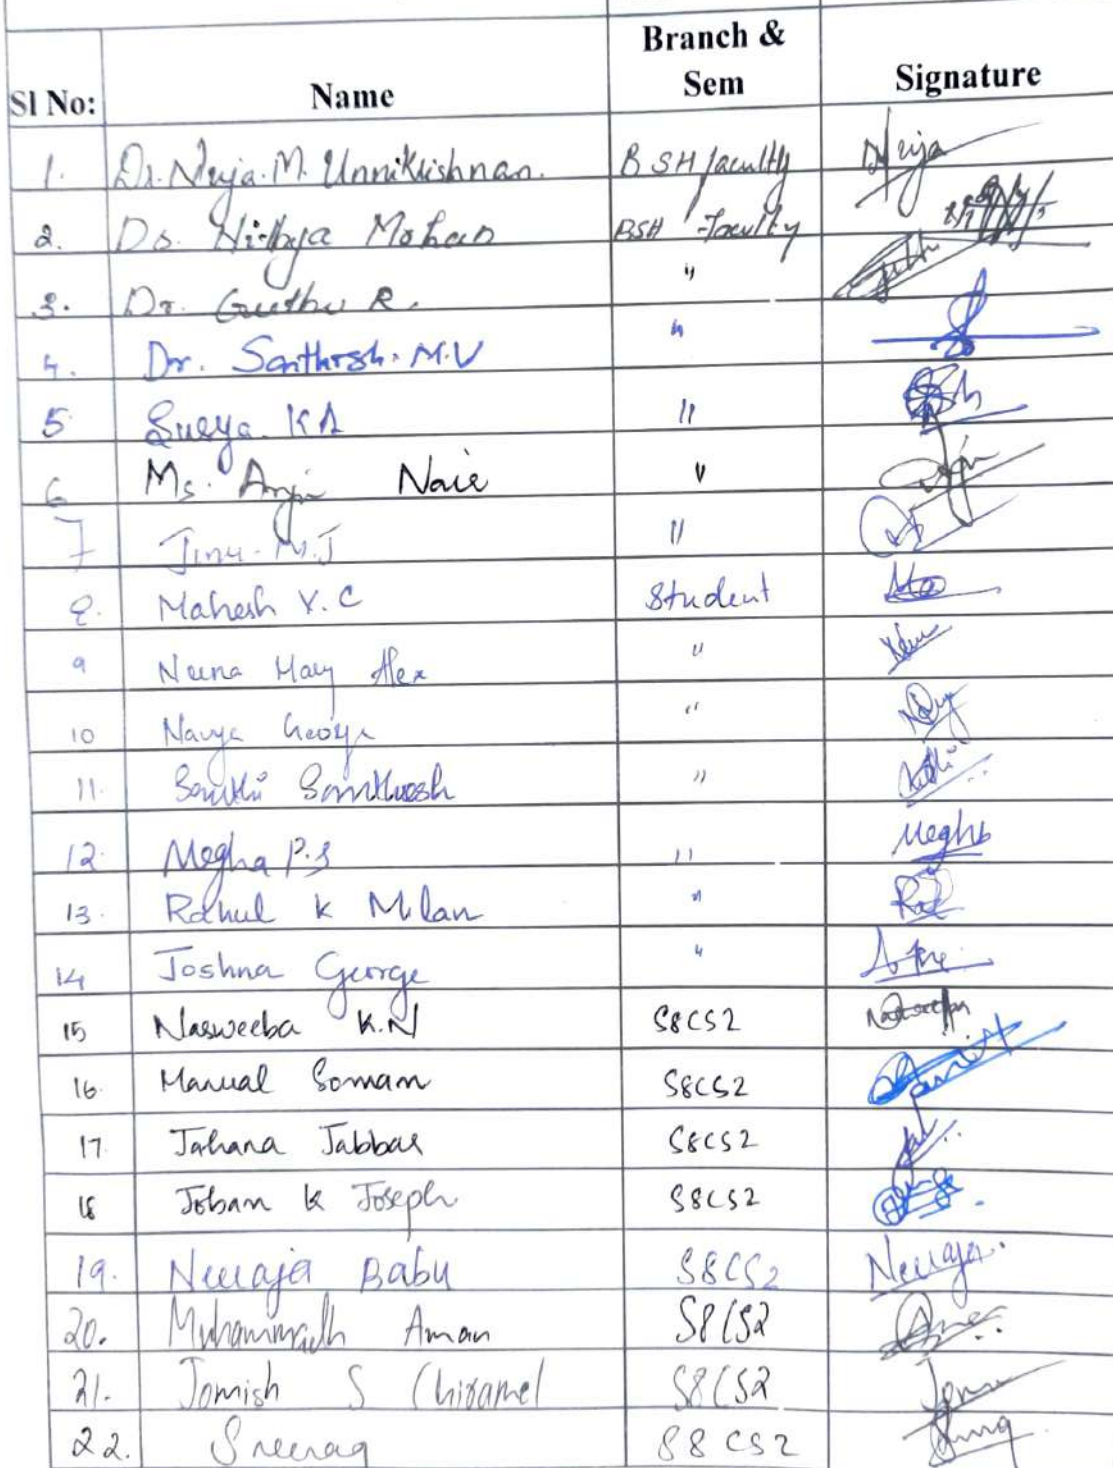 Sl No: Name Branch & Sem Signature
1. Dr. Nrija. M. Unnikrishnan. BSH faculty Nrija
2. Dr. Nithya Mohan BSH Faculty
3. Dr. Geethu R. "
4. Dr. Santhosh. M.V "
5 Surya. K A "
6 Ms. Anju Nair "
7 Jinu. M.J "
8. Mahesh V.C Student
9 Neena Mary Alex "
10 Navya George "
11. Santhosh "
12. Megha P.S " Megha
13. Rahul K Milan "
14 Joshna George "
15 Nasweeba K.N S8CS2 Nasweeba
16. Manual Soman S8CS2
17. Jahana Jabbar S8CS2
18 Joban K Joseph S8CS2
19. Neeraja Babu S8CS2 Neeraja.
20. Muhammadh Aman S8CS2
21. Jomish S Chiramel S8CS2
22. Sreerag S8CS2